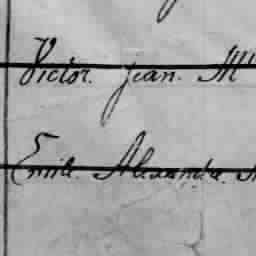 Victor. Jean. M
Emile. Alexandre.